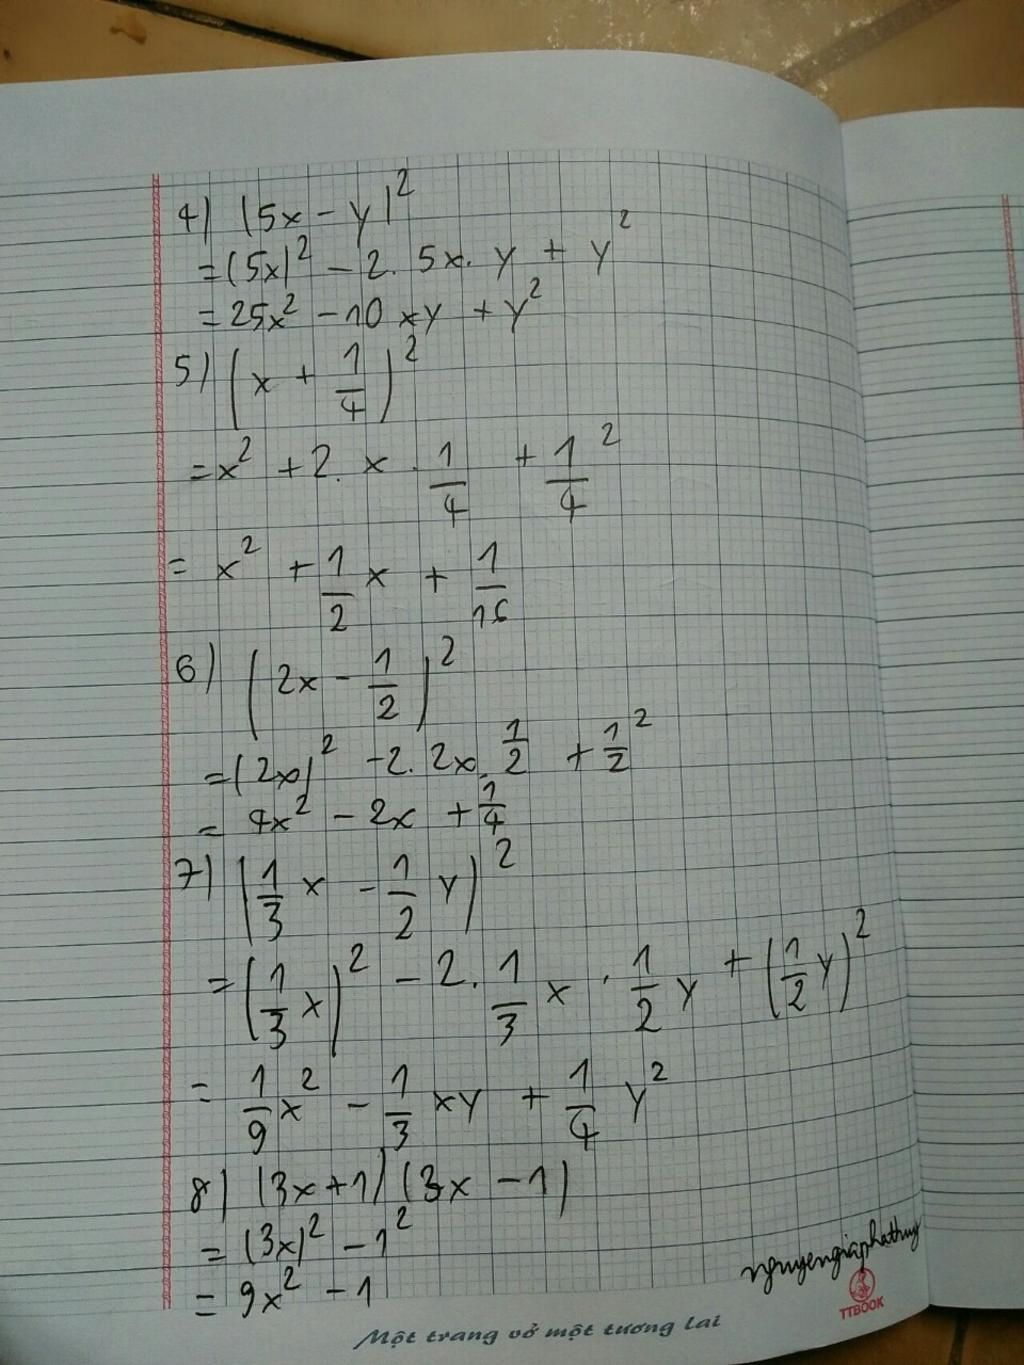 4) (5x - y)²
= (5x)² - 2. 5x. y + y²
= 25x² - 10 xy + y²
5) (x + 1/4)²
= x² + 2. x . 1/4 + 1/4²
= x² + 1/2 x + 1/16
6) (2x - 1/2)²
= (2x)² - 2. 2x. 1/2 + 1/2²
= 4x² - 2x + 1/4
7) (1/3 x - 1/2 y)²
= (1/3 x)² - 2. 1/3 x . 1/2 y + (1/2 y)²
= 1/9 x² - 1/3 xy + 1/4 y²
8) (3x + 1) (3x - 1)
= (3x)² - 1²
= 9x² - 1
nguyengiaphathuy
TTBOOK
Một trang vở một tương lai